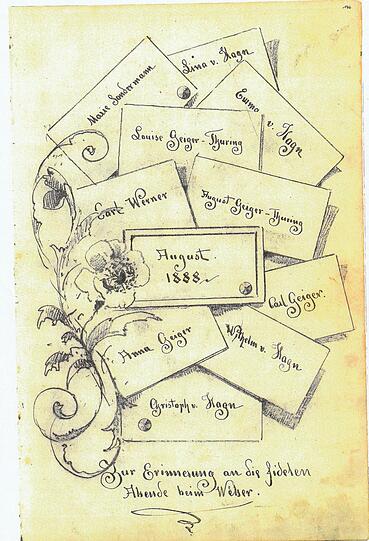 Lina v. Hagn
Marie Sondermann
Emma v. Hagn
Louise Geiger-Thuring
Carl Werner
August Geiger-Thuring
August
1888
Carl Geiger.
Anna Geiger
Wilhelm v. Hagn
Christoph v. Hagn
Zur Erinnerung an die fidelen
Abende beim Weber.